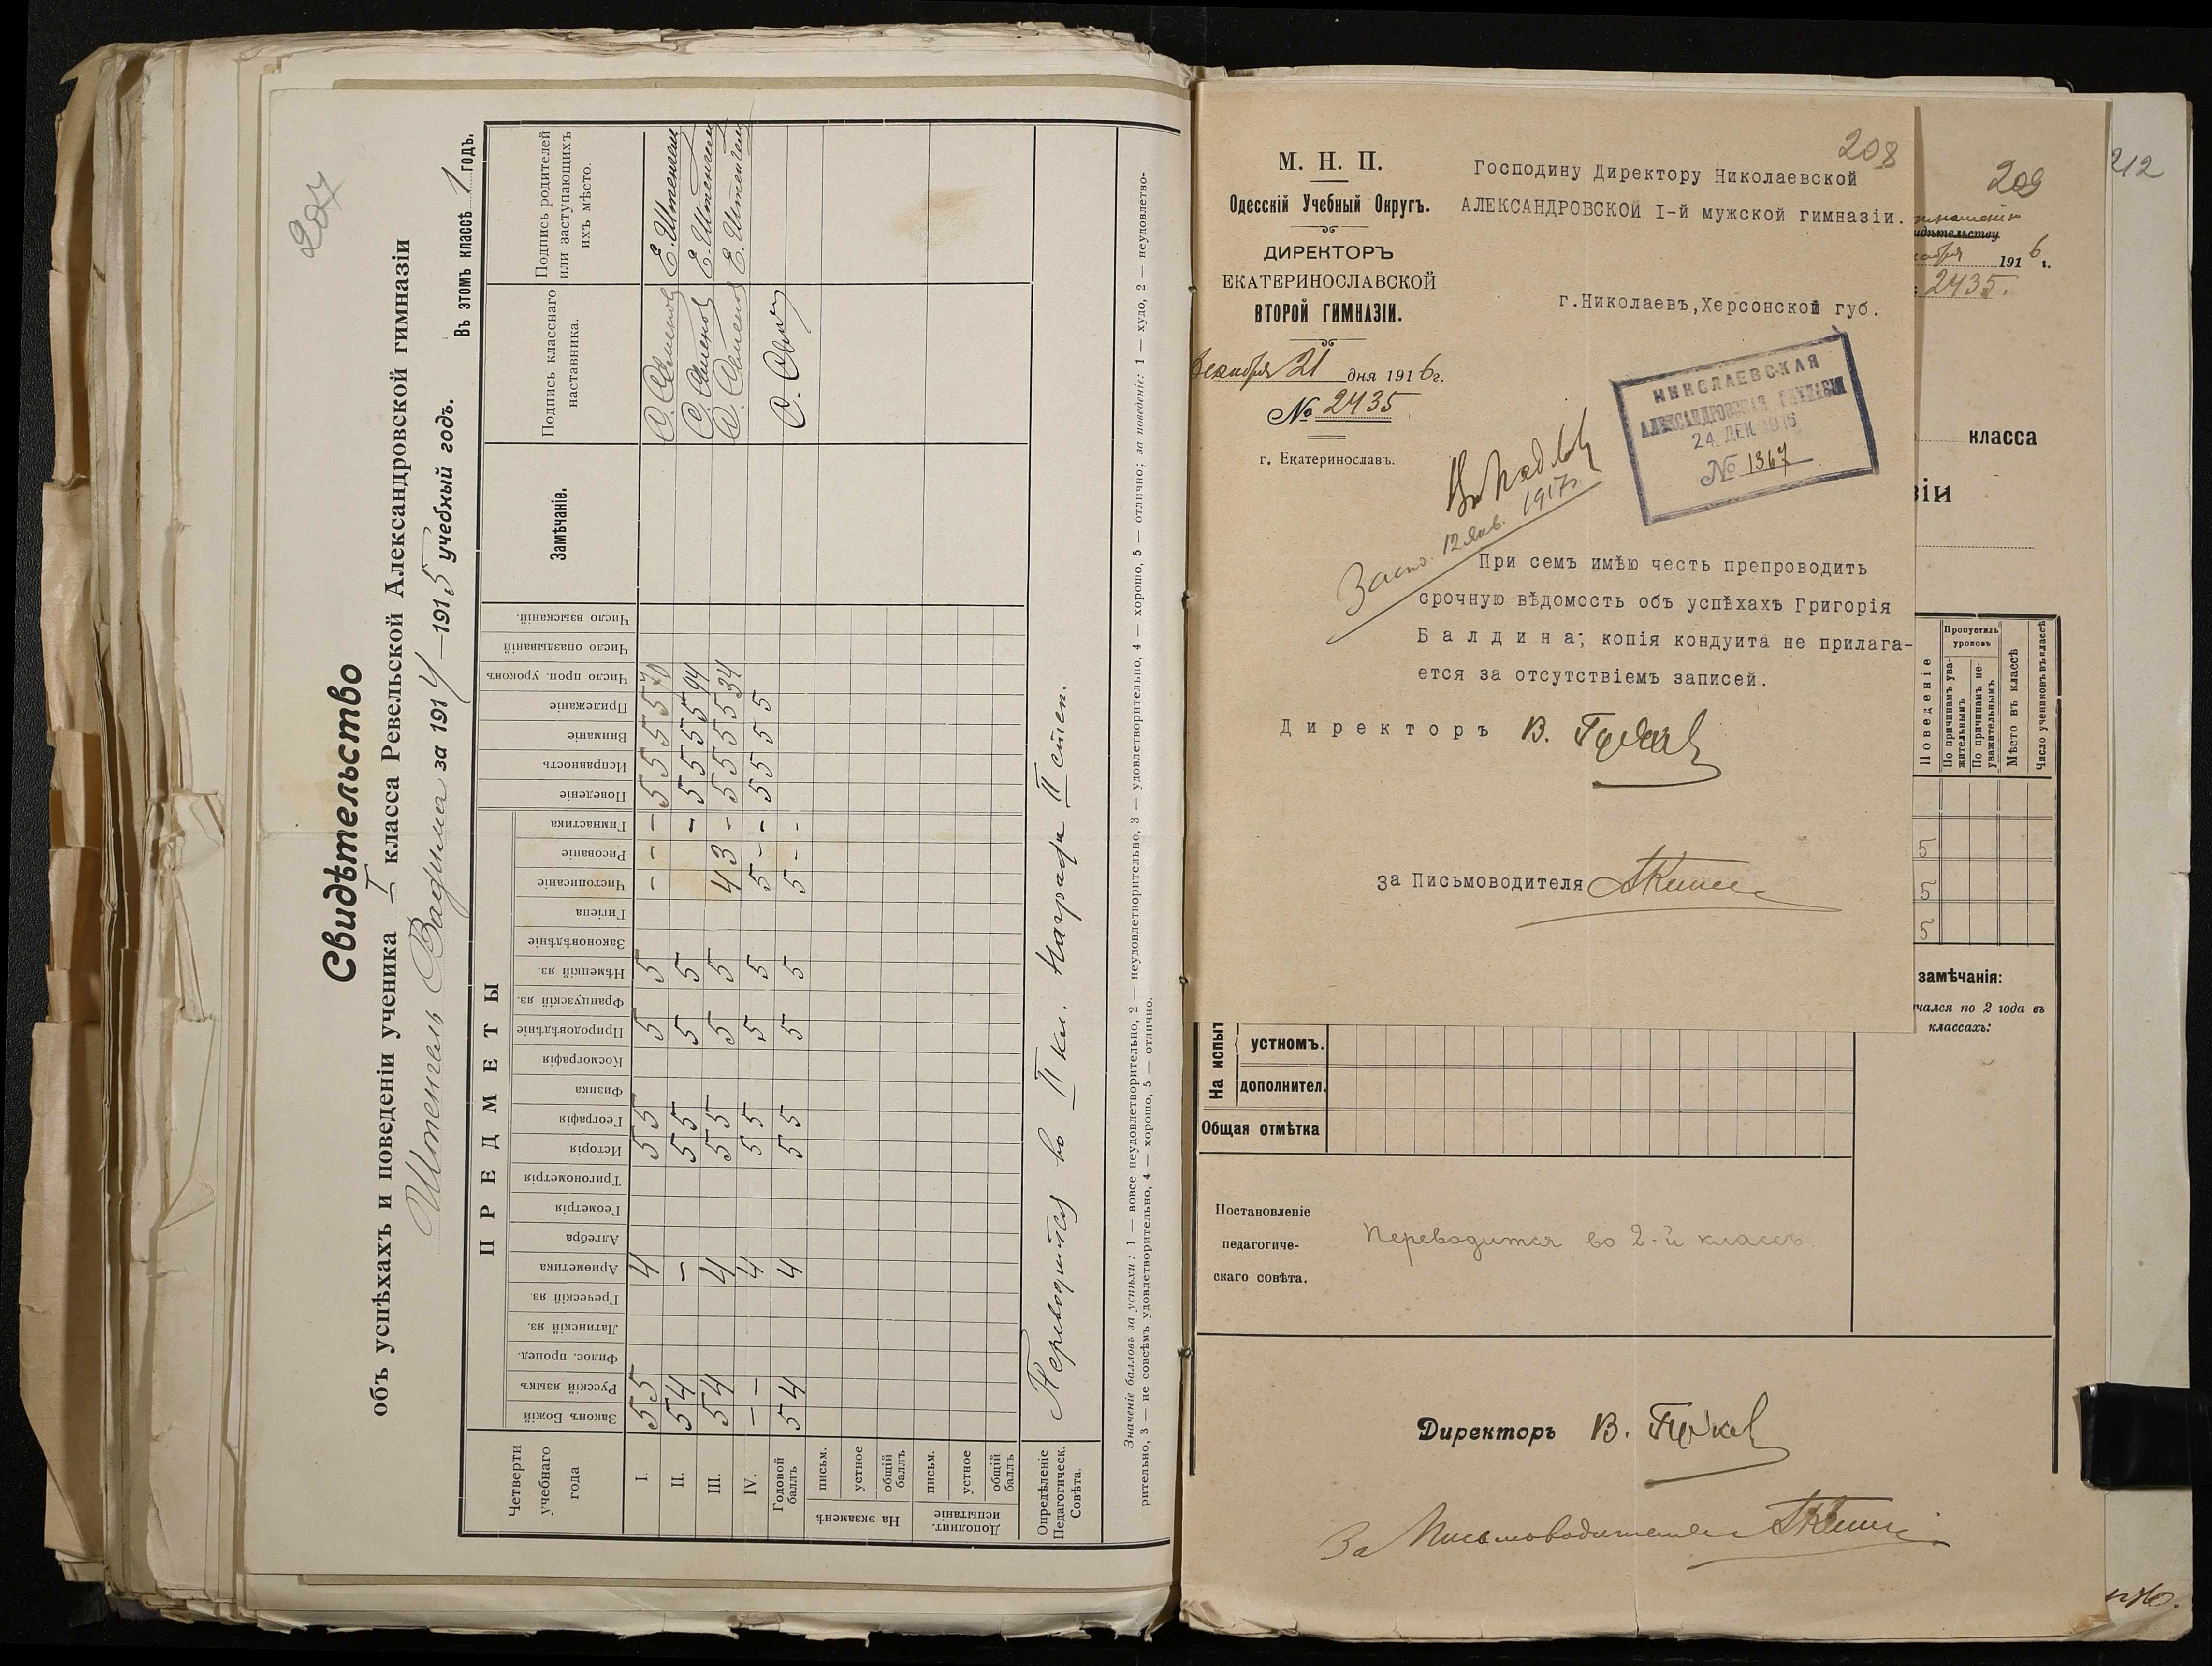 207
Свидѣтельство
объ успѣхахъ и поведеніи ученика I класса Ревельской Александровской гимназіи
Штенгель Вадима за 1914—1915 учебный годъ.
Въ этомъ классѣ 1 годъ.
Четверти учебнаго года
ПРЕДМЕТЫ
Законъ Божій
Русскій языкъ
Филос. пропед.
Латинскій яз.
Греческій яз.
Ариѳметика
Алгебра
Геометрія
Тригонометрія
Исторія
Географія
Физика
Космографія
Природовѣдѣніе
Французскій яз.
Нѣмецкій яз.
Законовѣдѣніе
Гигіена
Чистописаніе
Рисованіе
Гимнастика
Поведеніе
Исправность
Вниманіе
Прилежаніе
Число проп. уроковъ
Число опаздываній
Число взысканій.
Замѣчаніе.
Подпись класснаго наставника.
Подпись родителей или заступающихъ ихъ мѣсто.
I. 5 5 4 5 5 5 5 — — — 5 5 5 5 Е. Штенгель
II. 5 4 — 5 5 5 5 — 5 5 5 5 44 Е. Штенгель
III. 5 4 4 5 5 5 5 4 3 — 5 5 5 5 34 Е. Штенгель
IV. — — 4 5 5 5 5 5 — — 5 5 5 5
Годовой баллъ 5 4 4 5 5 5 5 5 — —
На экзаменѣ
письм.
устное
общій баллъ
Дополнит. испытаніе
письм.
устное
общій баллъ
Опредѣленіе Педагогическ. Совѣта.
Переводится во II кл. Награда II степ.
Значеніе балловъ за успѣхи: 1 — вовсе неудовлетворительно, 2 — неудовлетворительно, 3 — удовлетворительно, 4 — хорошо, 5 — отлично; за поведеніе: 1 — худо, 2 — неудовлетво-
рительно, 3 — не совсѣмъ удовлетворительно, 4 — хорошо, 5 — отлично.
208
М. Н. П.
Одесскій Учебный Округъ.
ДИРЕКТОРЪ
ЕКАТЕРИНОСЛАВСКОЙ
ВТОРОЙ ГИМНАЗІИ.
Декабря 21 дня 1916г.
№ 2435
г. Екатеринославъ.
Господину Директору Николаевской
АЛЕКСАНДРОВСКОЙ I-й мужской гимназіи.
г.Николаевъ,Херсонской губ.
НИКОЛАЕВСКАЯ
АЛЕКСАНДРОВСКАЯ ГИМНАЗІЯ
24 ДЕК 1916
№ 1367
12 Янв. 1917г
При семъ имѣю честь препроводить
срочную вѣдомость объ успѣхахъ Григорія
Балдина; копія кондуита не прилага-
ется за отсутствіемъ записей.
Директоръ В.
за Письмоводителя
209
идѣтельству
1916 г.
2435.
класса
зіи
Поведеніе
Пропустилъ уроковъ
По причинамъ ува-
жительнымъ
По причинамъ не-
уважительнымъ
Мѣсто въ классѣ
Число учениковъ въ классѣ
5
5
5
замѣчанія:
чался по 2 года въ
классахъ:
На испыт
устномъ.
дополнител.
Общая отмѣтка
Постановленіе
педагогиче-
скаго совѣта.
Переводится во 2-й классъ
Директоръ В.
За Письмоводителя
212